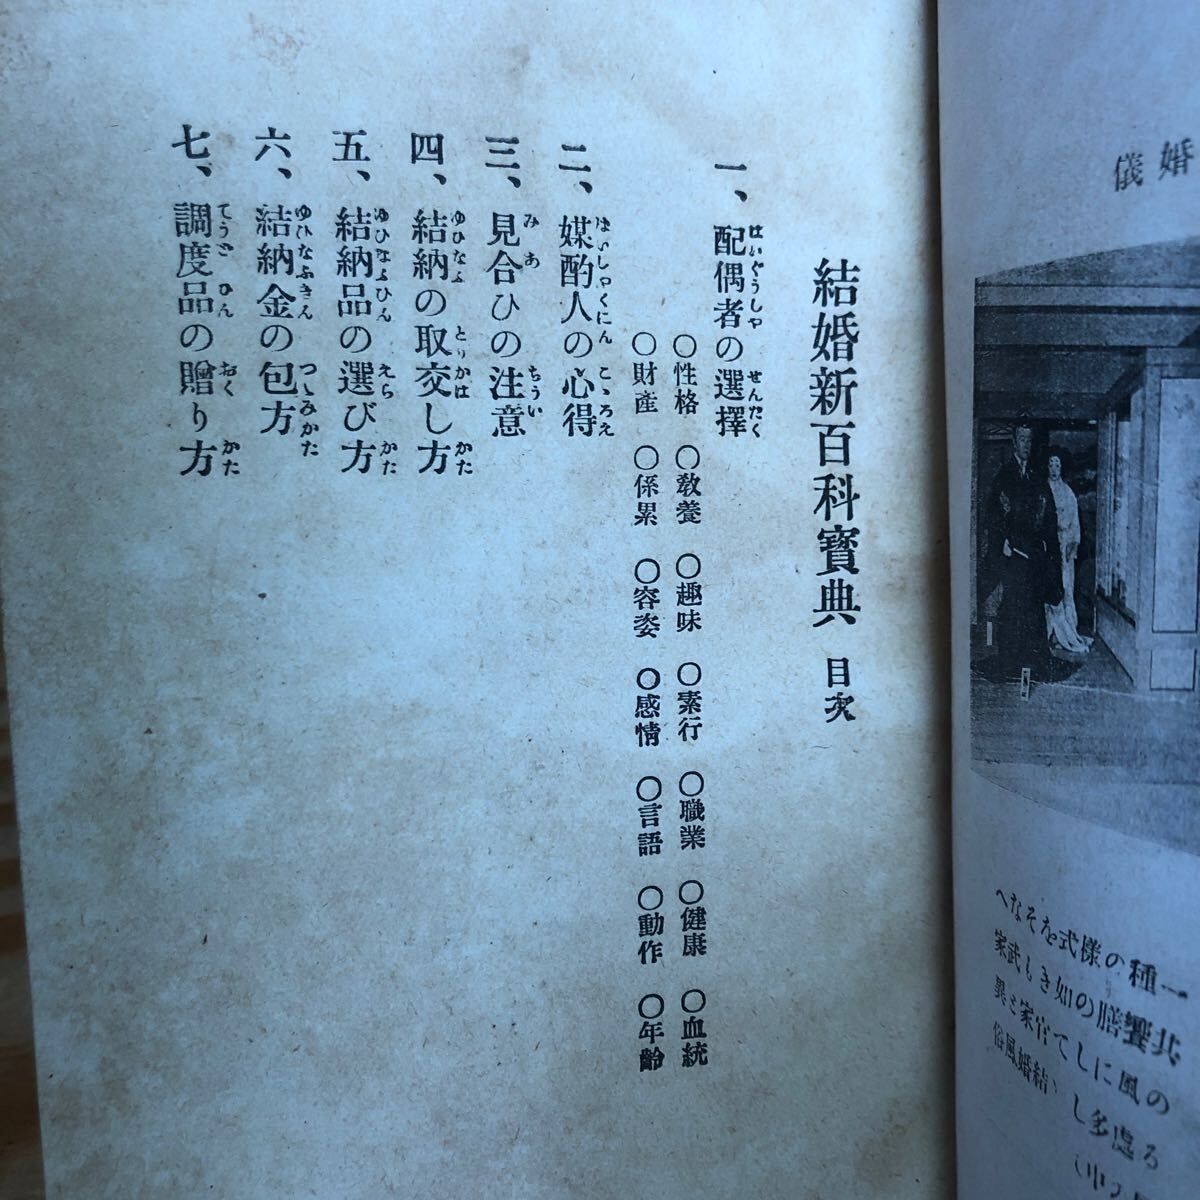 結婚新百科寶典 目次
一、配偶者の選擇
○性格 ○教養 ○趣味 ○素行 ○職業 ○健康 ○血統
○財產 ○係累 ○容姿 ○感情 ○言語 ○動作 ○年齡
二、媒酌人の心得
三、見合ひの注意
四、結納の取交し方
五、結納品の選び方
六、結納金の包方
七、調度品の贈り方
婚儀
一種の樣式をそなへ
饗膳の如きも武家
の風にして官家と異
る處多し、結婚風俗